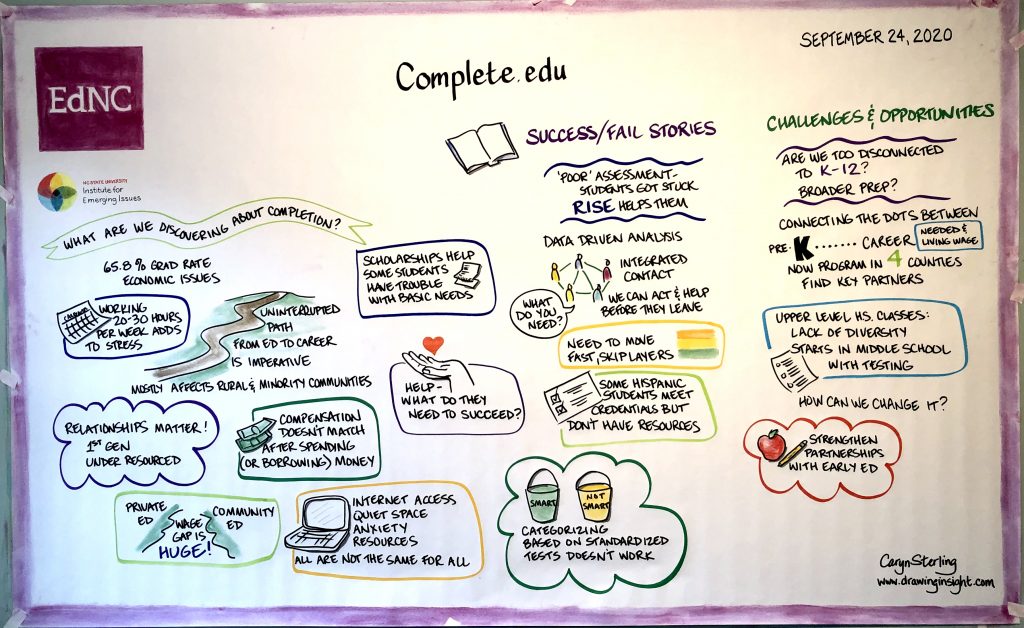 SEPTEMBER 24, 2020
EdNC
Complete.edu
NC STATE UNIVERSITY
Institute for
Emerging Issues
WHAT ARE WE DISCOVERING ABOUT COMPLETION?
65.8 % GRAD RATE
ECONOMIC ISSUES
WORKING
20-30 HOURS
PER WEEK ADDS
TO STRESS
UNINTERRUPTED
PATH
FROM ED TO CAREER
IS IMPERATIVE
MOSTLY AFFECTS RURAL & MINORITY COMMUNITIES
RELATIONSHIPS MATTER!
1ST GEN
UNDER RESOURCED
COMPENSATION
DOESN'T MATCH
AFTER SPENDING
(OR BORROWING) MONEY
PRIVATE
ED
WAGE
GAP IS
HUGE!
COMMUNITY
ED
INTERNET ACCESS
QUIET SPACE
ANXIETY
RESOURCES
ALL ARE NOT THE SAME FOR ALL
SCHOLARSHIPS HELP
SOME STUDENTS
HAVE TROUBLE
WITH BASIC NEEDS
HELP-
WHAT DO THEY
NEED TO SUCCEED?
SUCCESS/FAIL STORIES
'POOR' ASSESSMENT-
STUDENTS GOT STUCK
RISE HELPS THEM
DATA DRIVEN ANALYSIS
INTEGRATED
CONTACT
WHAT
DO YOU
NEED?
WE CAN ACT & HELP
BEFORE THEY LEAVE
NEED TO MOVE
FAST, SKIP LAYERS
SOME HISPANIC
STUDENTS MEET
CREDENTIALS BUT
DON'T HAVE RESOURCES
SMART
NOT
SMART
CATEGORIZING
BASED ON STANDARDIZED
TESTS DOESN'T WORK
CHALLENGES & OPPORTUNITIES
ARE WE TOO DISCONNECTED
TO K-12?
BROADER PREP?
CONNECTING THE DOTS BETWEEN
PRE-K....... CAREER NEEDED &
LIVING WAGE
NOW PROGRAM IN 4 COUNTIES
FIND KEY PARTNERS
UPPER LEVEL HS. CLASSES:
LACK OF DIVERSITY
STARTS IN MIDDLE SCHOOL
WITH TESTING
HOW CAN WE CHANGE IT?
STRENGTHEN
PARTNERSHIPS
WITH EARLY ED
CarynSterling
www.drawinginsight.com